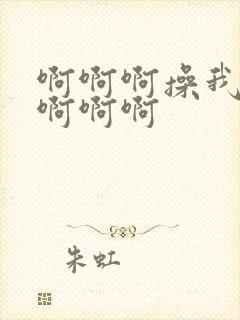 啊啊啊操我
啊啊啊
朱虹